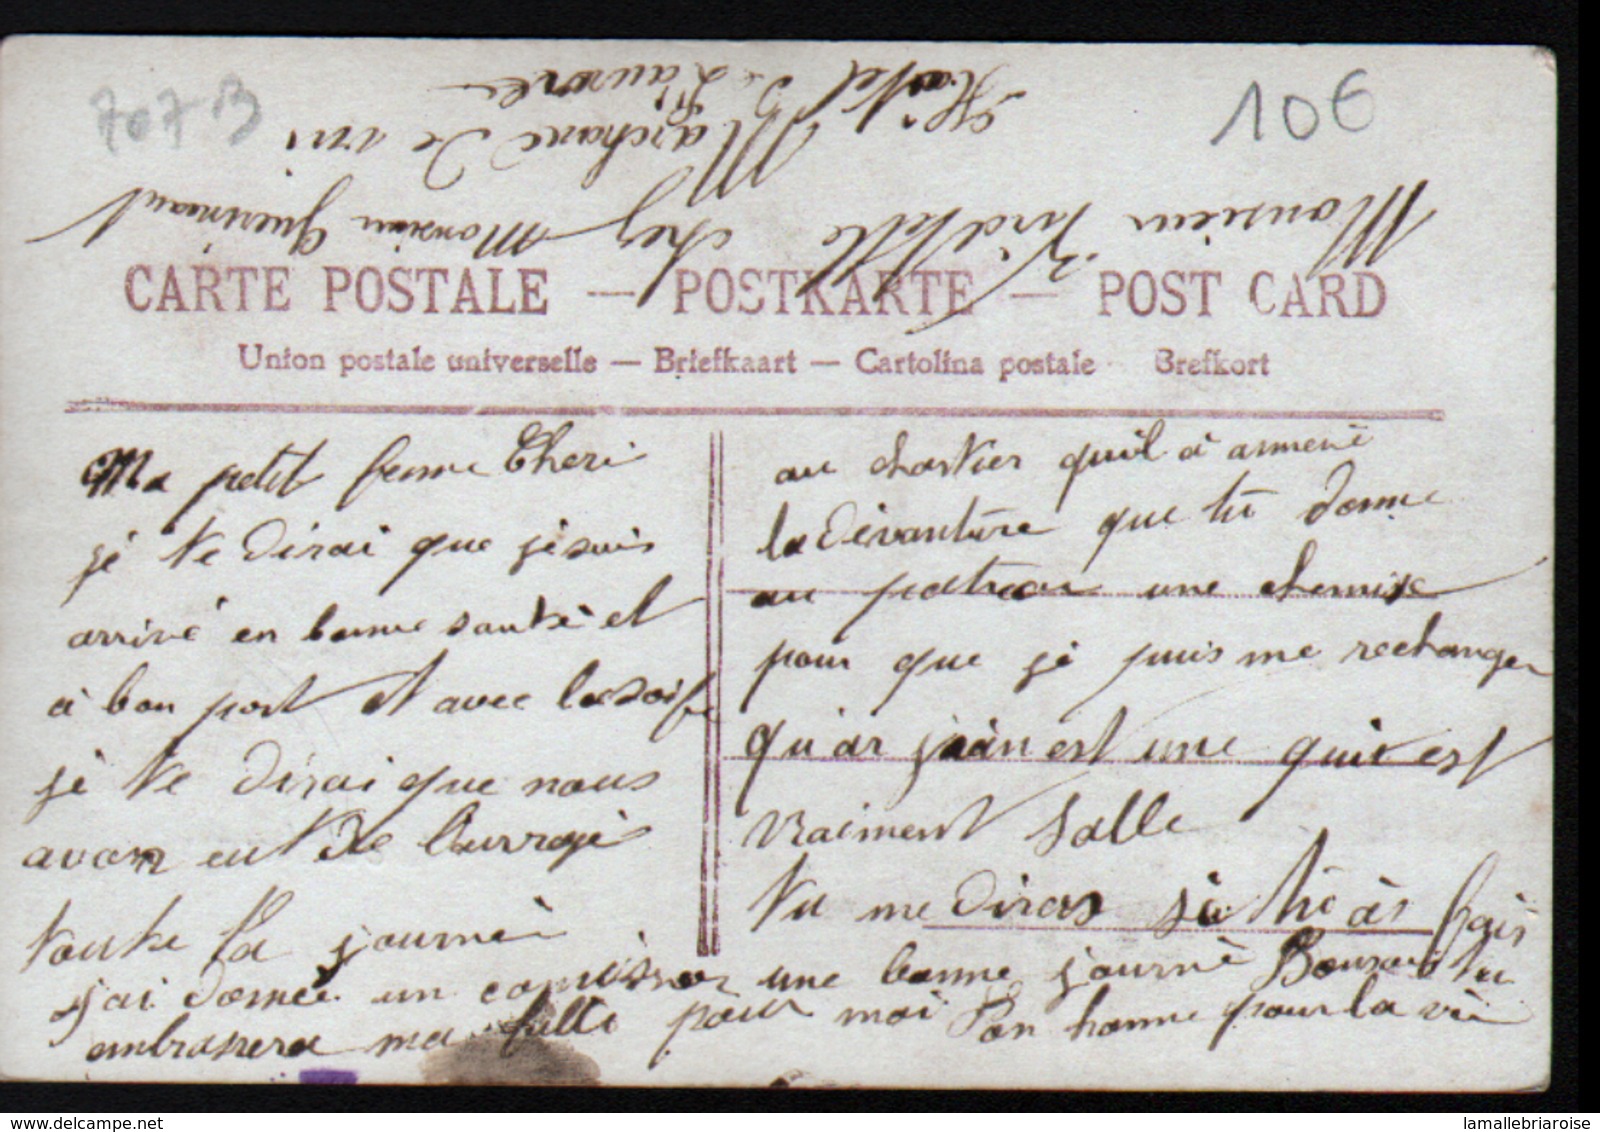 707 B
10€
Hotel de L'aurore
Marchand de vin
Monsieur chez Monsieur
CARTE POSTALE — POSTKARTE — POST CARD
Union postale universelle — Briefkaart — Cartolina postale Brefkort
Ma petit femme Cheri
je te dirai que je suis
arrivé en bonne santé et
a bon port et avec la soif
je te dirai que nous
avon eut de l'ouvragé
toute la journéé
j'ai donné un
au qu'il à amené
la dévanture que tu donne
au patron une chemise
pour que je puis me rechanger
qu'ar j'ain est une qui est
vraiment salle
tu me diras si tu às fais
une bonne journé Bonsoir tu
embrassera ma fille pour moi
Ton homme pour la vie
lamallebriaroise
delcampe.net